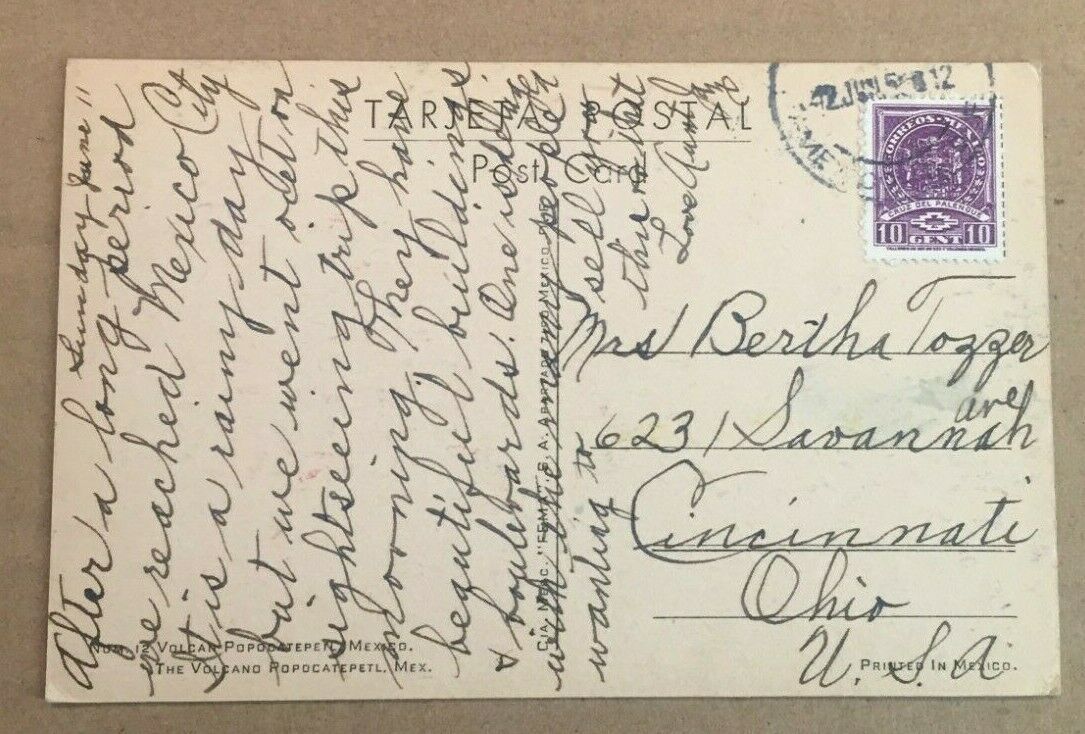 Sunday June 11
After a long period
we reached Mexico City
It is a rainy day
but we went out on
sightseeing trip this
morning. They have
beautiful buildings
& boulevards. One is today
with the many people
wanting to sell you
this & that
Love Aunt
TARJETA POSTAL
Post Card
12 JUN
12
CORREOS MEXICO
CRUZ DEL PALENQUE
10 CENT 10
Mrs Bertha Tozzer
6231 Savannah ave
Cincinnati
Ohio
U. S. A
CIA. MEXC. "FEMA", S. A. APARTADO MEXICO D.F.
NUM. 12 VOLCAN POPOCATEPETL, MEXICO.
THE VOLCANO POPOCATEPETL, MEX.
PRINTED IN MEXICO.